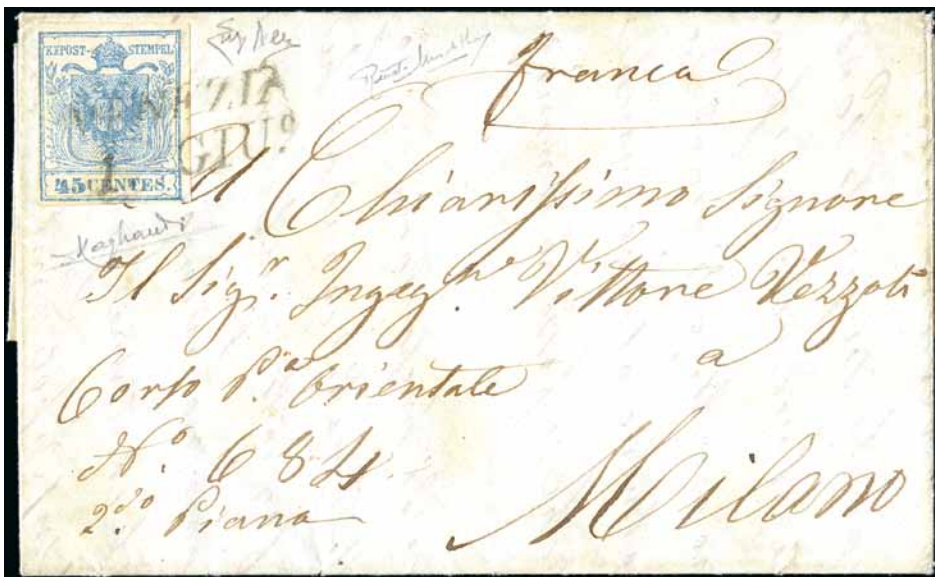 KKPOST-STEMPEL
45 CENTES.
VENEZIA
1. GIUº
franca
Al Chiarissimo Signore
Il Sigr. Ingegre Vittore Vezzoli
a
Corso Pa. Orientale
No. 684.
2do Piano
Milano